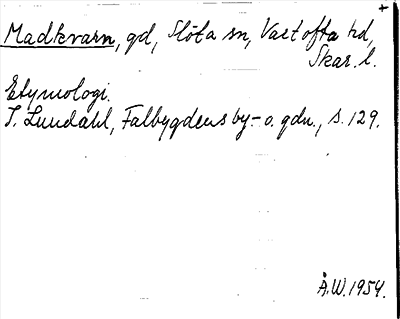 +
Madkvarn, gd, Slöta sn, Vartofta hd,
Skar. l.
Etymologi.
I. Lundahl, Falbygdens by- o. gdn., s. 129.
Å.W. 1954.